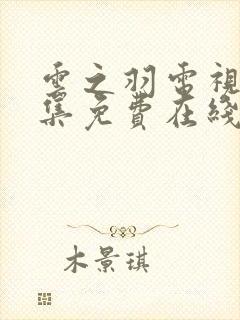 雲之羽電視
集免費在綫
木景琪